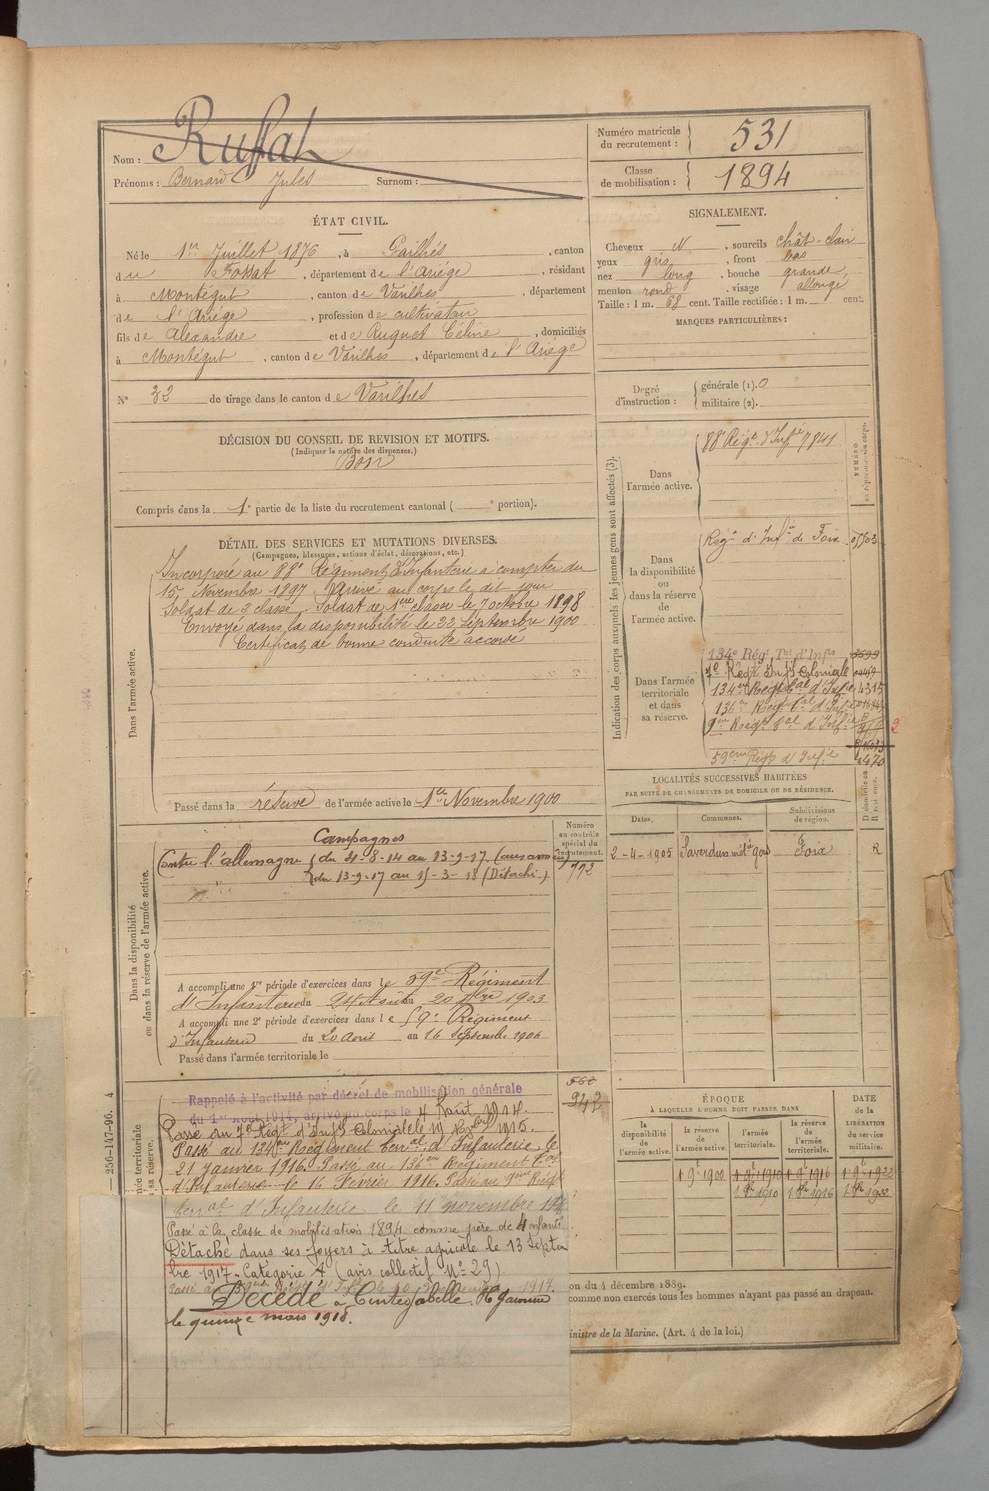 Nom : Ruffat
Prénoms : Bernard Jules Surnom :
Numéro matricule du recrutement : 531
Classe de mobilisation : 1894
ÉTAT CIVIL.
Né le 1er Juillet 1876, à Gailhés, canton
du Fossat, département de l'Ariége, résidant
à Montégut, canton de Varilhes, département
de l'Ariége, profession de cultivateur
fils de Alexandre et de Ruquet Céline, domiciliés
à Montégut, canton de Varilhes, département de l'Ariége
N° 32 de tirage dans le canton de Varilhes
SIGNALEMENT.
Cheveux N, sourcils chât-clair
yeux gris, front bas
nez long, bouche grande,
menton rond, visage allongé
Taille : 1 m. 68 cent. Taille rectifiée : 1 m. cent.
MARQUES PARTICULIÈRES :
Degré d'instruction : générale (1). 0
militaire (2).
DÉCISION DU CONSEIL DE REVISION ET MOTIFS.
(Indiquer la nature des dispenses.)
Bon
Compris dans la 1e partie de la liste du recrutement cantonal ( e portion).
DÉTAIL DES SERVICES ET MUTATIONS DIVERSES.
(Campagnes, blessures, actions d'éclat, décorations, etc.)
Dans l'armée active.
Incorporé au 88e Régiment d'Infanterie à compter du
15 Novembre 1897 Arrivé au corps le dit jour
Soldat de 2 classe. Soldat de 1ère classe le 7 octobre 1898
Envoyé dans la disponibilité le 22 Septembre 1900
Certificat de bonne conduite accordé
Passé dans la réserve de l'armée active le 1er Novembre 1900
Indication des corps auxquels les jeunes gens sont affectés (3).
NUMÉRO
Dans l'armée active.
88e Régt d'Infie 7841
Dans la disponibilité ou dans la réserve de l'armée active.
Régt d'Infie de Foix
Dans l'armée territoriale et dans sa réserve.
134e Régt Tal d'Infie 3599
7e Régt Infie Coloniale
134me Régt Tal d'Infie 4315
136me Régt Tal d'Infie
9me Régt Tal d'Infie
59eme Régt d'Infie 1470
2
LOCALITÉS SUCCESSIVES HABITÉES
PAR SUITE DE CHANGEMENTS DE DOMICILE OU DE RÉSIDENCE.
Dates. Communes. Subdivisions de région. D domicile ou R résidence.
2-4-1905 Saverdun Foix R
Dans la disponibilité ou dans la réserve de l'armée active.
Numéro au contrôle spécial du recrutement.
792
Campagnes
Contre l'allemagne (du 4-8-14 au 13-9-17. (aux armées)
(du 13-9-17 au 15-3-18 (Détaché)
A accompli une 1re période d'exercices dans le 59e Régiment
d'Infanterie du 24 Août au 20 7bre 1903
A accompli une 2e période d'exercices dans le 59e Régiment
d'Infanterie du 20 Août au 16 Septembre 1906
Passé dans l'armée territoriale le
560
942
Rappelé à l'activité par décret de mobilisation générale
du 1er Août 1914, arrivé au corps le 4 Août 1914.
Passé au 7e Régt d'Infie Coloniale le 19 1915.
Passé au 134e Régiment Terral d'Infanterie le
21 janvier 1916. Passé au 136me Régiment Tal
d'Infanterie le 16 Fevrier 1916. Passé au 9ème Régt
Terral d'Infanterie le 11 novembre
Passé à la classe de mobilisation 1894 comme père de 4 enfants
Détaché dans ses foyers à titre agricole le 13 Septem
bre 1917 - Catégorie A (avis collectif N° 29)
Décédé à Cintegabelle Hte Garonne
le quinze mars 1918.
ÉPOQUE
À LAQUELLE L'HOMME DOIT PASSER DANS
DATE de la LIBÉRATION du service militaire.
la disponibilité de l'armée active. la réserve de l'armée active. l'armée territoriale. la réserve de l'armée territoriale.
1 9e 1900 1 9e 1910 1 9e 1916 1 9e 1922
1910 1916 1922
on du 4 décembre 1889.
comme non exercés tous les hommes n'ayant pas passé au drapeau.
inistre de la Marine. (Art. 4 de la loi.)
— 256-147-96. 4